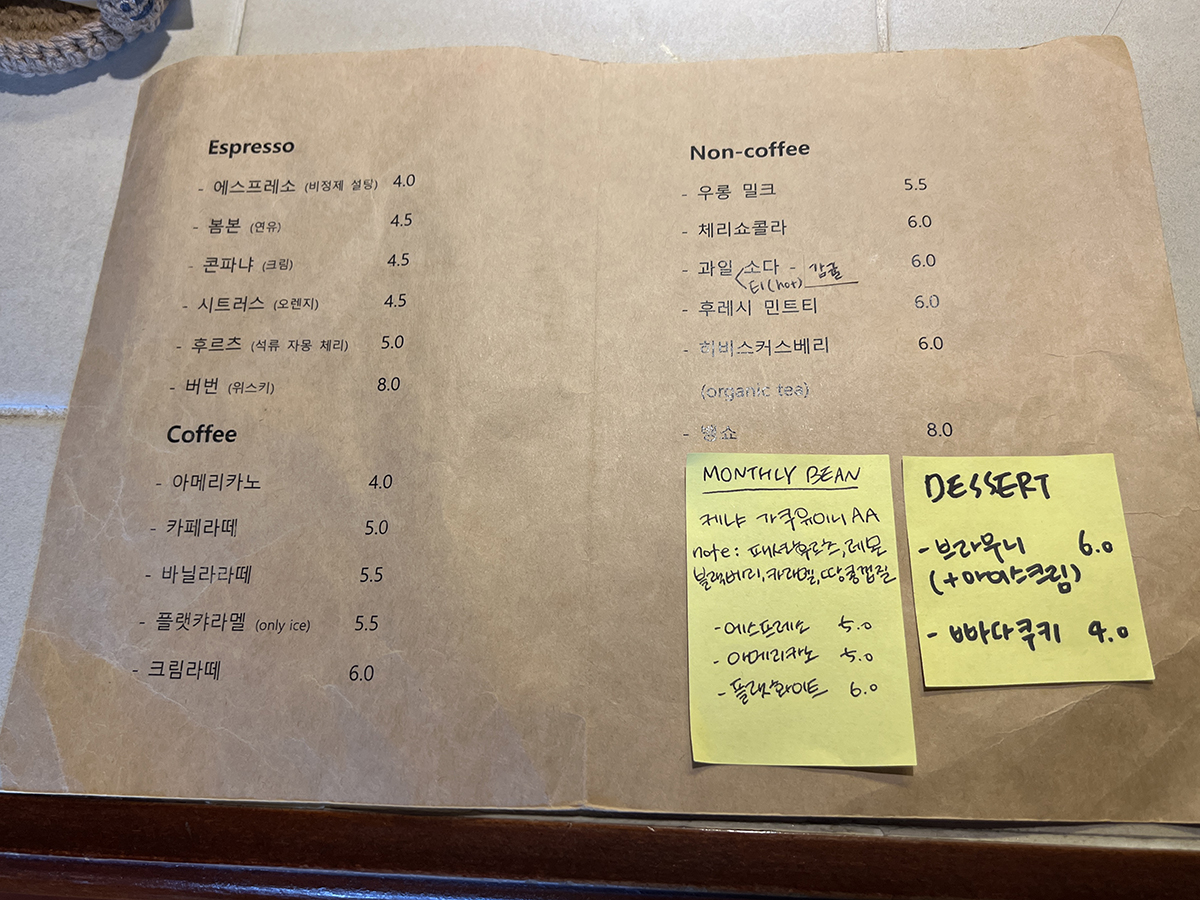 Espresso
- 에스프레소 (비정제 설탕) 4.0
- 봄본 (연유) 4.5
- 콘파냐 (크림) 4.5
- 시트러스 (오렌지) 4.5
- 후르츠 (석류 자몽 체리) 5.0
- 버번 (위스키) 8.0
Coffee
- 아메리카노 4.0
- 카페라떼 5.0
- 바닐라라떼 5.5
- 플랫캬라멜 (only ice) 5.5
- 크림라떼 6.0
Non-coffee
- 우롱 밀크 5.5
- 체리쇼콜라 6.0
- 과일 소다 - 감귤 6.0
티(hot)
- 후레시 민트티 6.0
- 히비스커스베리 6.0
(organic tea)
- 뱅쇼 8.0
MONTHLY BEAN
케냐 가쿠유이니 AA
note : 패션후르츠, 레몬
블랙베리, 카라멜, 땅콩껍질
- 에스프레소 5.0
- 아메리카노 5.0
- 플랫화이트 6.0
DESSERT
- 브라우니 6.0
(+아이스크림)
- 빠다쿠키 4.0